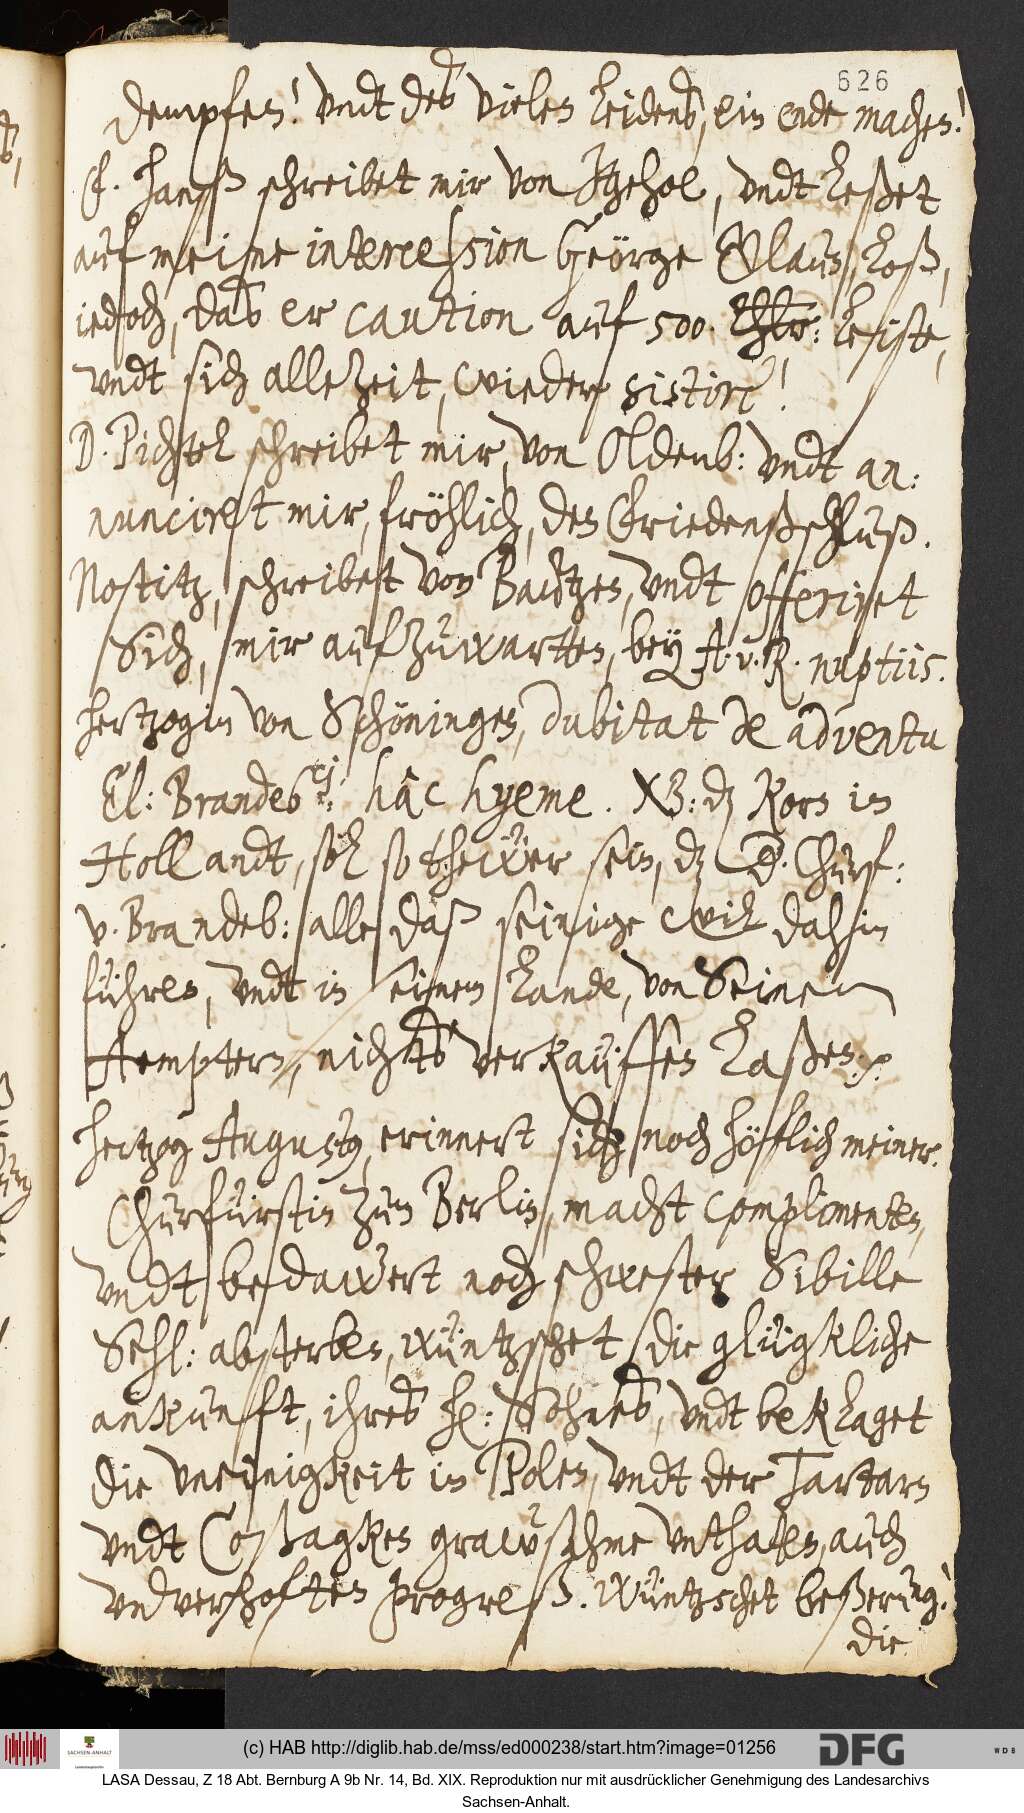 626
dempfen! vndt des vielen leidens, ein ende machen!
F. Hanß schreibet mir von Itzehoe, vndt leßet
auf meine intercession Geörge Clauß, loß,
iedoch, das er caution auf 500 Thlr: leiste,
vndt sich allezeit, wieder sistire!
D. Pichtel schreibet mir, von Oldenb: vndt an:
nunciret mir, fröhlich, den Friedensschluß.
Nostitz, schreibet von Bautzen, vndt offeriret
Sich, mir aufzuwartten, bey A. v. R. nuptiis.
Hertzogin von Schöningen, dubitat de adventu
El: Brandeb: hâc hyeme. NB: dz Korn in
Hollandt, soll so theẅer sein, dz D. Churf:
v. Brandeb: alle daß seinige will dahin
führen, vndt in seinem Lande, von Seinen
Aemptern, nichts verkauffen laßen.
Hertzog Augustus, erinnert sich noch höfflich meiner.
Churfürstin zum Berlin, macht complimenten,
vndt bedaẅert noch schwester Sibille
Sehl: absterben, wüntzschet die glügkliche
ankunft, ihres H: Sohnes, vndt beklaget
die vneinigkeit in Polen, vndt der Tartarn
vndt Cosagken graẅsahme vnthaten, auch
vnverhoften progreß. Wüntzschet beßerung!
die
(c) HAB http://diglib.hab.de/mss/ed000238/start.htm?image=01256
SACHSEN-ANHALT
DFG
WDB
LASA Dessau, Z 18 Abt. Bernburg A 9b Nr. 14, Bd. XIX. Reproduktion nur mit ausdrücklicher Genehmigung des Landesarchivs
Sachsen-Anhalt.